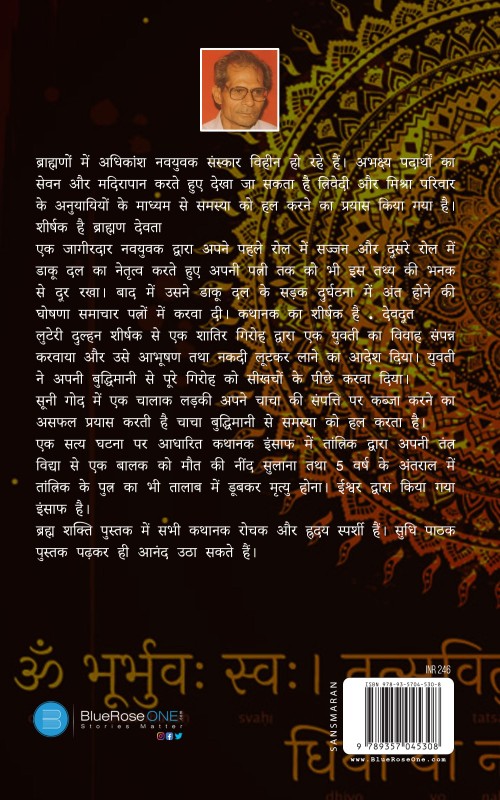 ब्राह्मणों में अधिकांश नवयुवक संस्कार विहीन हो रहे हैं। अभक्ष्य पदार्थों का
सेवन और मदिरापान करते हुए देखा जा सकता है त्रिवेदी और मिश्रा परिवार
के अनुयायियों के माध्यम से समस्या को हल करने का प्रयास किया गया है।
शीर्षक है ब्राह्मण देवता
एक जागीरदार नवयुवक द्वारा अपने पहले रोल में सज्जन और दूसरे रोल में
डाकू दल का नेतृत्व करते हुए अपनी पत्नी तक की भी इस तथ्य की भनक
से दूर रखा। बाद में उसने डाकू दल के सड़क दुर्घटना में अंत होने की
घोषणा समाचार पत्रों में करवा दी। कथानक का शीर्षक है . देवदूत
लुटेरी दुल्हन शीर्षक से एक शातिर गिरोह द्वारा एक युवती का विवाह संपन्न
करवाया और उसे आभूषण तथा नकदी लूटकर लाने का आदेश दिया। युवती
ने अपनी बुद्धिमानी से पूरे गिरोह को सीखचों के पीछे करवा दिया।
सूनी गोद में एक चालाक लड़की अपने चाचा की संपत्ति पर कब्जा करने का
असफल प्रयास करती है चाचा बुद्धिमानी से समस्या को हल करता है।
एक सत्य घटना पर आधारित कथानक इंसाफ में तांत्रिक द्वारा अपनी तंत्र
विद्या से एक बालक को मौत की नींद सुलाना तथा 5 वर्ष के अंतराल में
तांत्रिक के पुत्र का भी तालाब में डूबकर मृत्यु होना। ईश्वर द्वारा किया गया
इंसाफ है।
ब्रह्म शक्ति पुस्तक में सभी कथानक रोचक और हृदय स्पर्शी हैं। सुधि पाठक
पुस्तक पढ़कर ही आनंद उठा सकते हैं।
ॐ भूर्भुवः स्वः। तत्सवित
svahi
tats
धियो यो न
dhiyo yo na
BlueRose ONE
Stories Matter
SANSMARAN
INR 246
ISBN 978-93-5704-530-8
9 789357 045308
www.BlueRoseOne.com